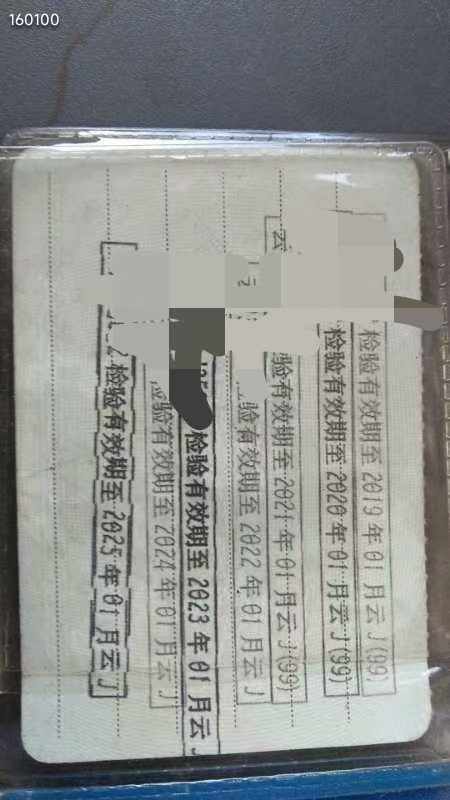 160100
检验有效期至2019年01月云J(99)
检验有效期至2020年01月云J(99)
云 验有效期至2021年01月云J(99)
验有效期至2022年01月云J
检验有效期至2023年01月云J
验有效期至2024年01月云J
检验有效期至2025年01月云J